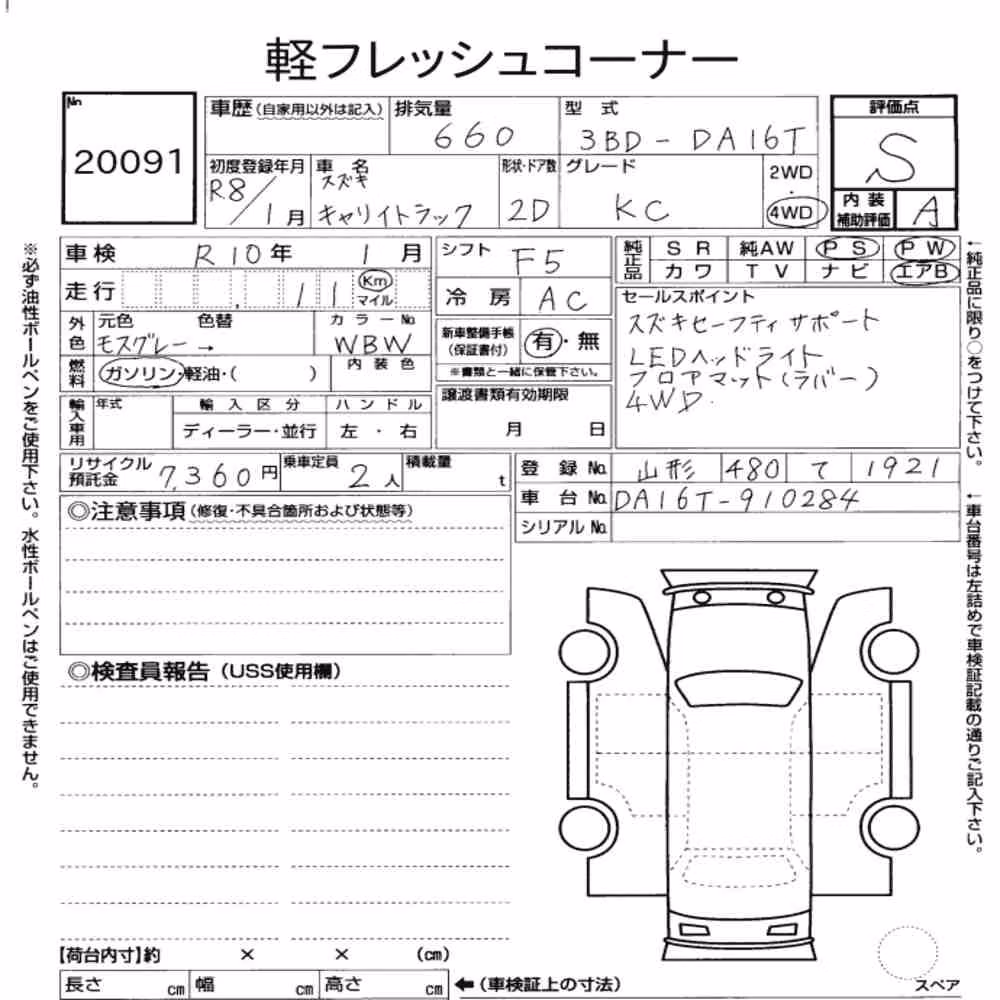 軽フレッシュコーナー
No
20091
車歴(自家用以外は記入)
排気量
660
型 式
3BD-DA16T
評価点
S
初度登録年月
R8/1月
車 名
スズキ
キャリイトラック
形状・ドア数
2D
グレード
KC
2WD
・
4WD
内 装
補助評価
A
車検 R10年 1月
シフト F5
純正品
SR 純AW PS PW
カワ TV ナビ エアB
走行 , 11 Km
マイル
冷 房 AC
セールスポイント
スズキセーフティサポート
LEDヘッドライト
フロアマット(ラバー)
4WD.
外色
元色 色替
モスグレー →
カラーNo
WBW
新車整備手帳
(保証書付)
有・無
※書類と一緒に保管下さい。
燃料
ガソリン・軽油・( )
内装色
譲渡書類有効期限
月 日
輸入車用
年式
輸入区分
ディーラー・並行
ハンドル
左・右
リサイクル
預託金
7,360円
乗車定員
2人
積載量
t
登録No. 山形 480 て 1921
車台No. DA16T-910284
シリアルNo.
◎注意事項(修復・不具合箇所および状態等)
◎検査員報告(USS使用欄)
【荷台内寸】約 × × (cm)
長さ cm 幅 cm 高さ cm
←(車検証上の寸法)
スペア
※必ず油性ボールペンをご使用下さい。水性ボールペンはご使用できません。
←純正品に限り○をつけて下さい。
←車台番号は左詰めで車検証記載の通りご記入下さい。